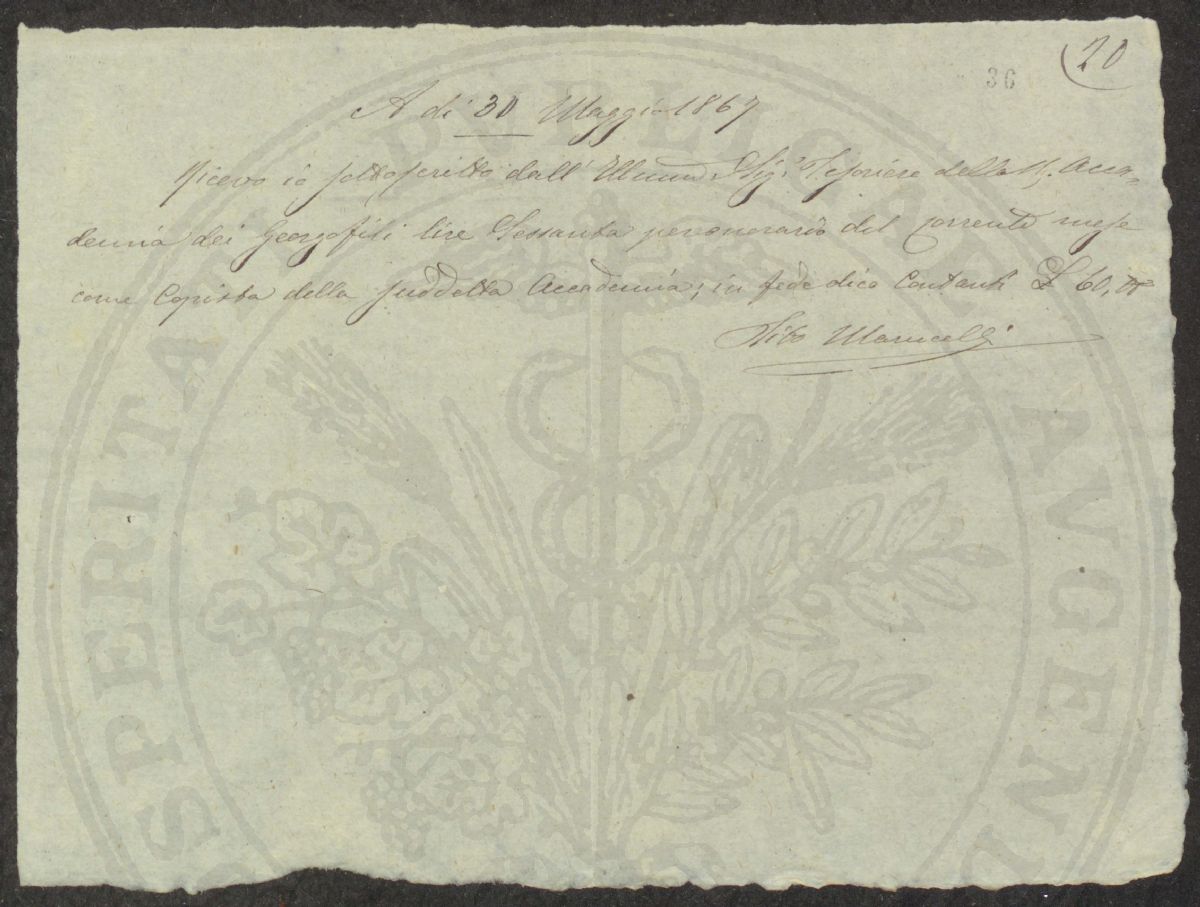 20
36
A dì 30 Maggio 1867
Ricevo io sottoscritto dall' Illmo Sig. Tesoriere della R. Acca-
demia dei Georgofili lire Sessanta per onorario del corrente mese
come Copista della suddetta Accademia; in fede dico Contanti £ 60,
Marucelli
PROSPERITATI PUBLICAE AVGENDAE